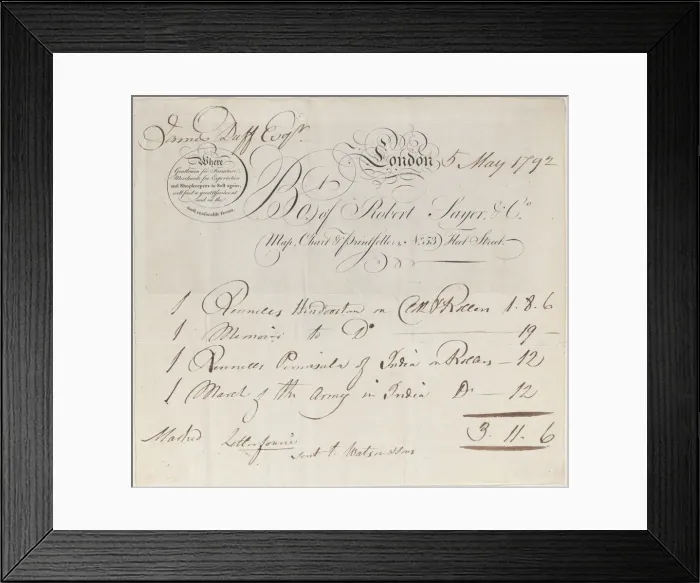 James Duff Esqr.
London 5 May 1792
Where
Gentlemen for Furniture,
Merchants for Exportation
and Shopkeepers to Sell again;
will find a great
and on the
most reasonable Terms.
Bo. of Robert Sayer, & Co.
Map, Chart & Printsellers, No. 53 Fleet Street.
1 Rennells Hindoostan on Rollers 1.8.6
1 Memoir to Do 19 -
1 Rennells Peninsula of India on Rollers - 12
1 March of the Army in India Do - 12
3. 11. 6
Marked
sent to